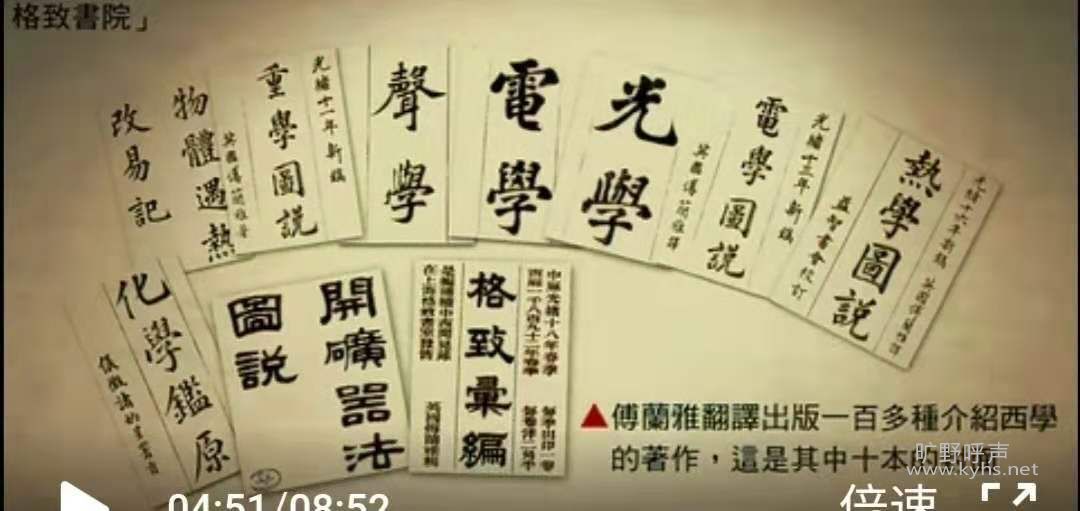 格致書院」
改易記
物體遇熱
英國傅蘭雅著
重學圖說
光緒十一年新鐫
聲學
電學
光學
英國傅蘭雅譯
電學圖說
光緒十三年新鐫
益智書會校訂
熱學圖說
光緒十六年新鐫 英國傅蘭雅譯
化學鑑原
開礦器法
圖說
格致彙編
▲傅蘭雅翻譯出版一百多種介紹西學
的著作,這是其中十本的封
旷野呼声
www.kyhs.net
04:51/08:52
倍速